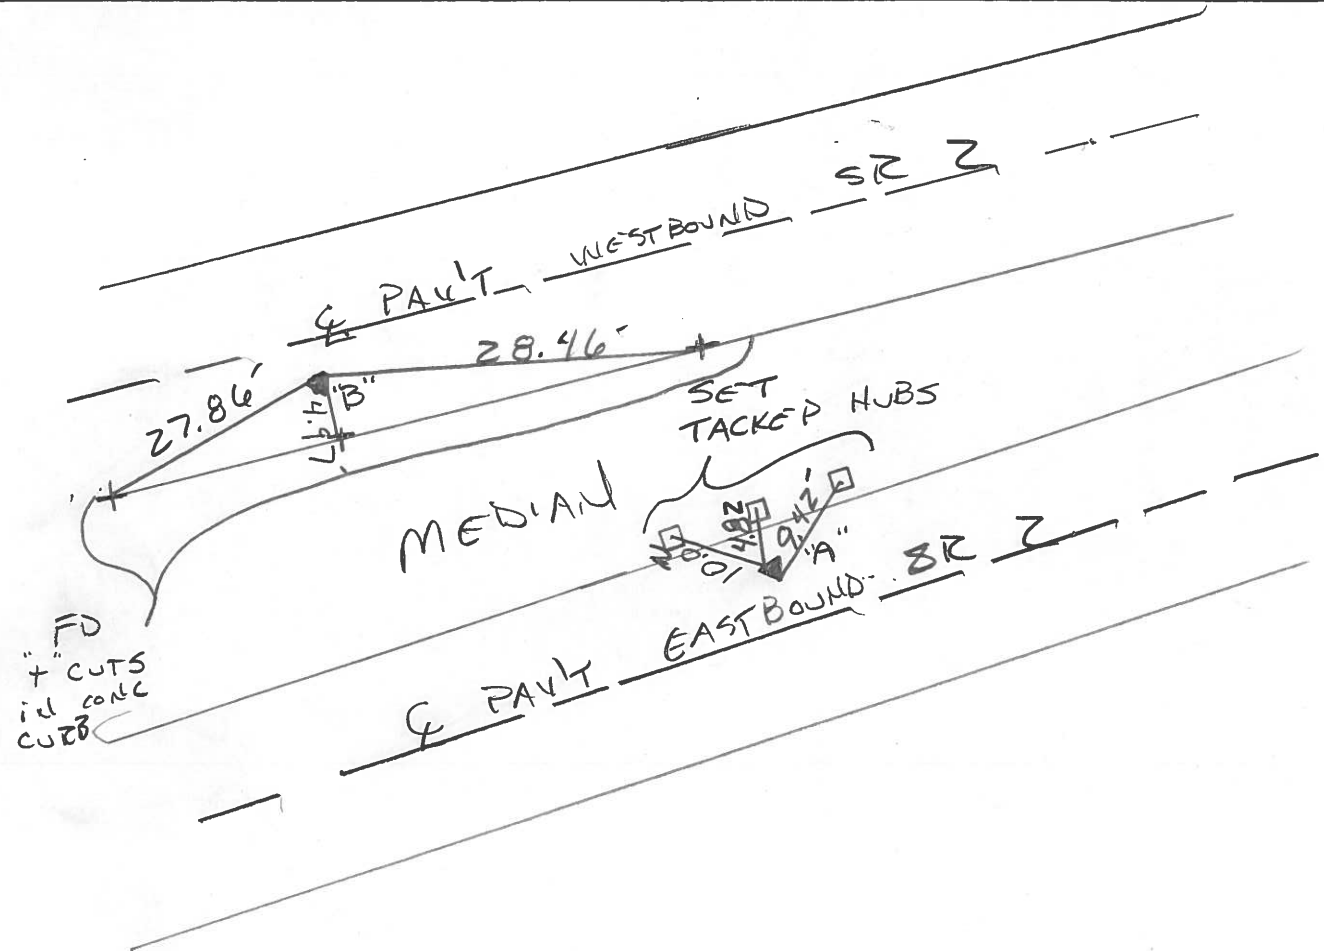 ℄ PAV'T WESTBOUND SR 2
28.46'
27.86'
"B"
SET
TACKED HUBS
MEDIAN
4.82
9.42'
"A"
FD
"+" CUTS
in conc
CURB
℄ PAV'T EASTBOUND SR 2